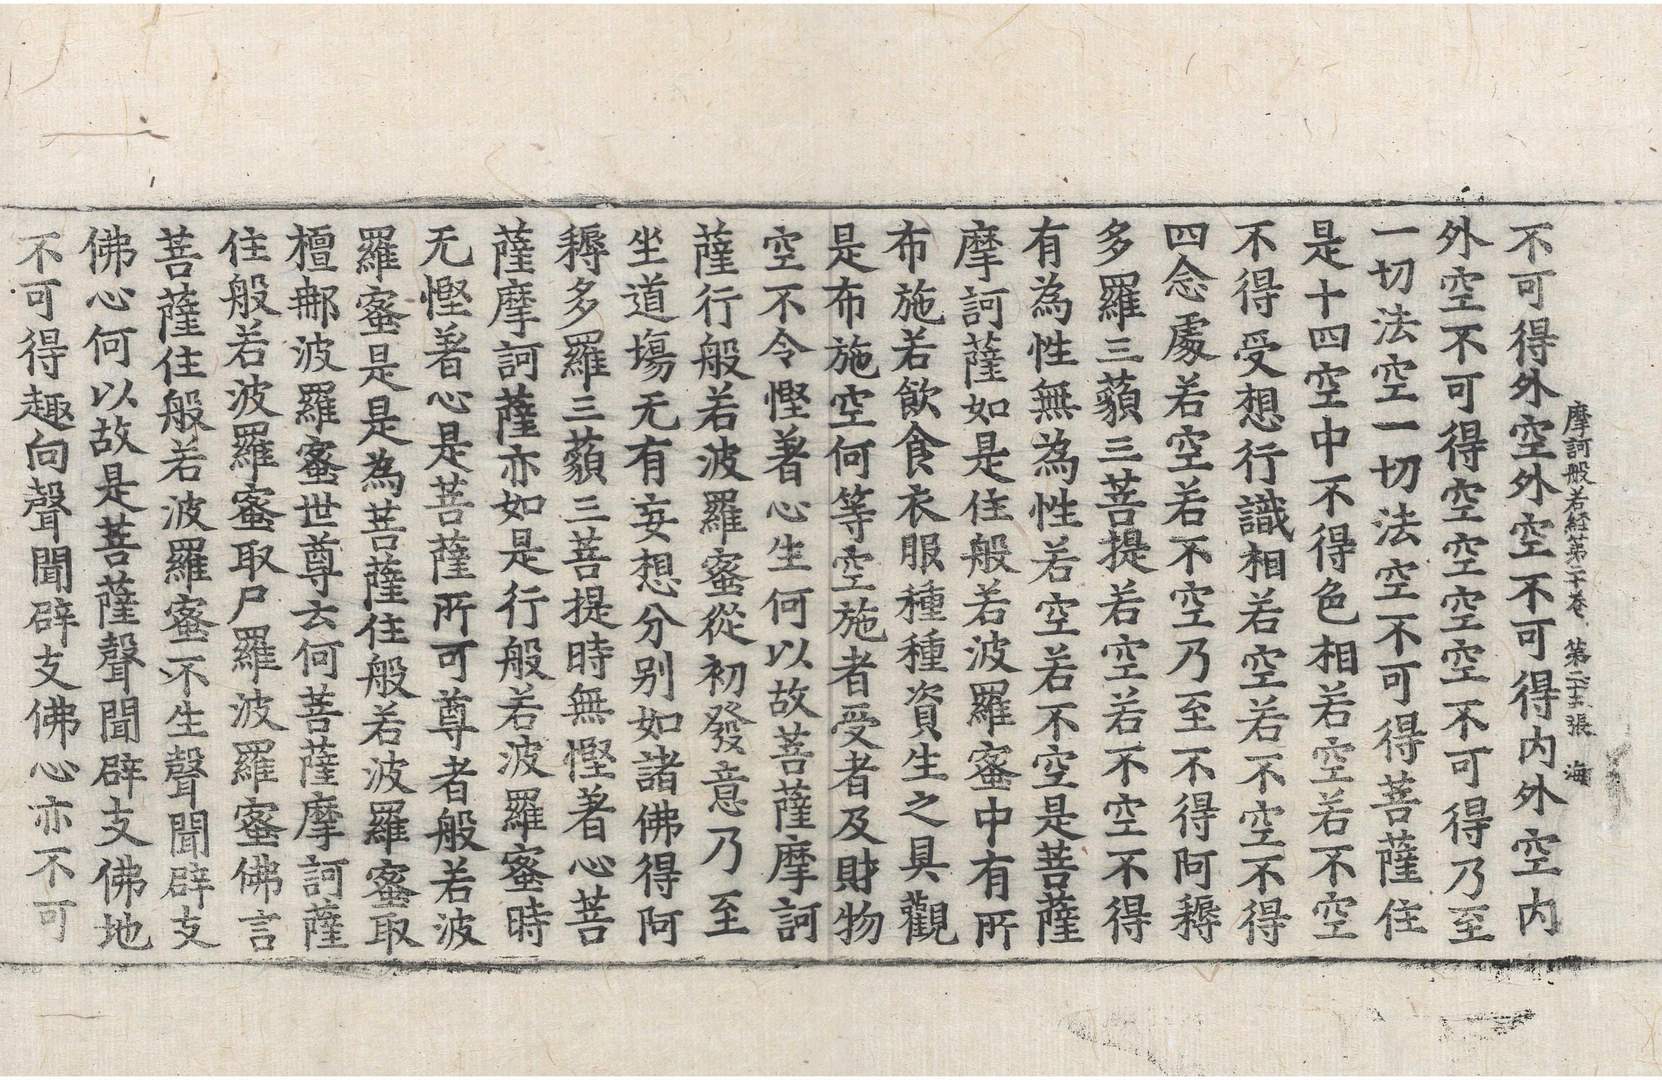 摩訶般若経第二十卷　第二十張　海
不可得外空外空不可得内外空内
外空不可得空空空空不可得乃至
一切法空一切法空不可得菩薩住
是十四空中不得色相若空若不空
不得受想行識相若空若不空不得
四念處若空若不空乃至不得阿耨
多羅三藐三菩提若空若不空不得
有為性無為性若空若不空是菩薩
摩訶薩如是住般若波羅蜜中有所
布施若飲食衣服種種資生之具觀
是布施空何等空施者受者及財物
空不令慳著心生何以故菩薩摩訶
薩行般若波羅蜜從初發意乃至
坐道塲无有妄想分别如諸佛得阿
耨多羅三藐三菩提時無慳著心菩
薩摩訶薩亦如是行般若波羅蜜時
无慳著心是菩薩所可尊者般若波
羅蜜是是為菩薩住般若波羅蜜取
檀那波羅蜜世尊云何菩薩摩訶薩
住般若波羅蜜取尸羅波羅蜜佛言
菩薩住般若波羅蜜不生聲聞辟支
佛心何以故是菩薩聲聞辟支佛地
不可得趣向聲聞辟支佛心亦不可